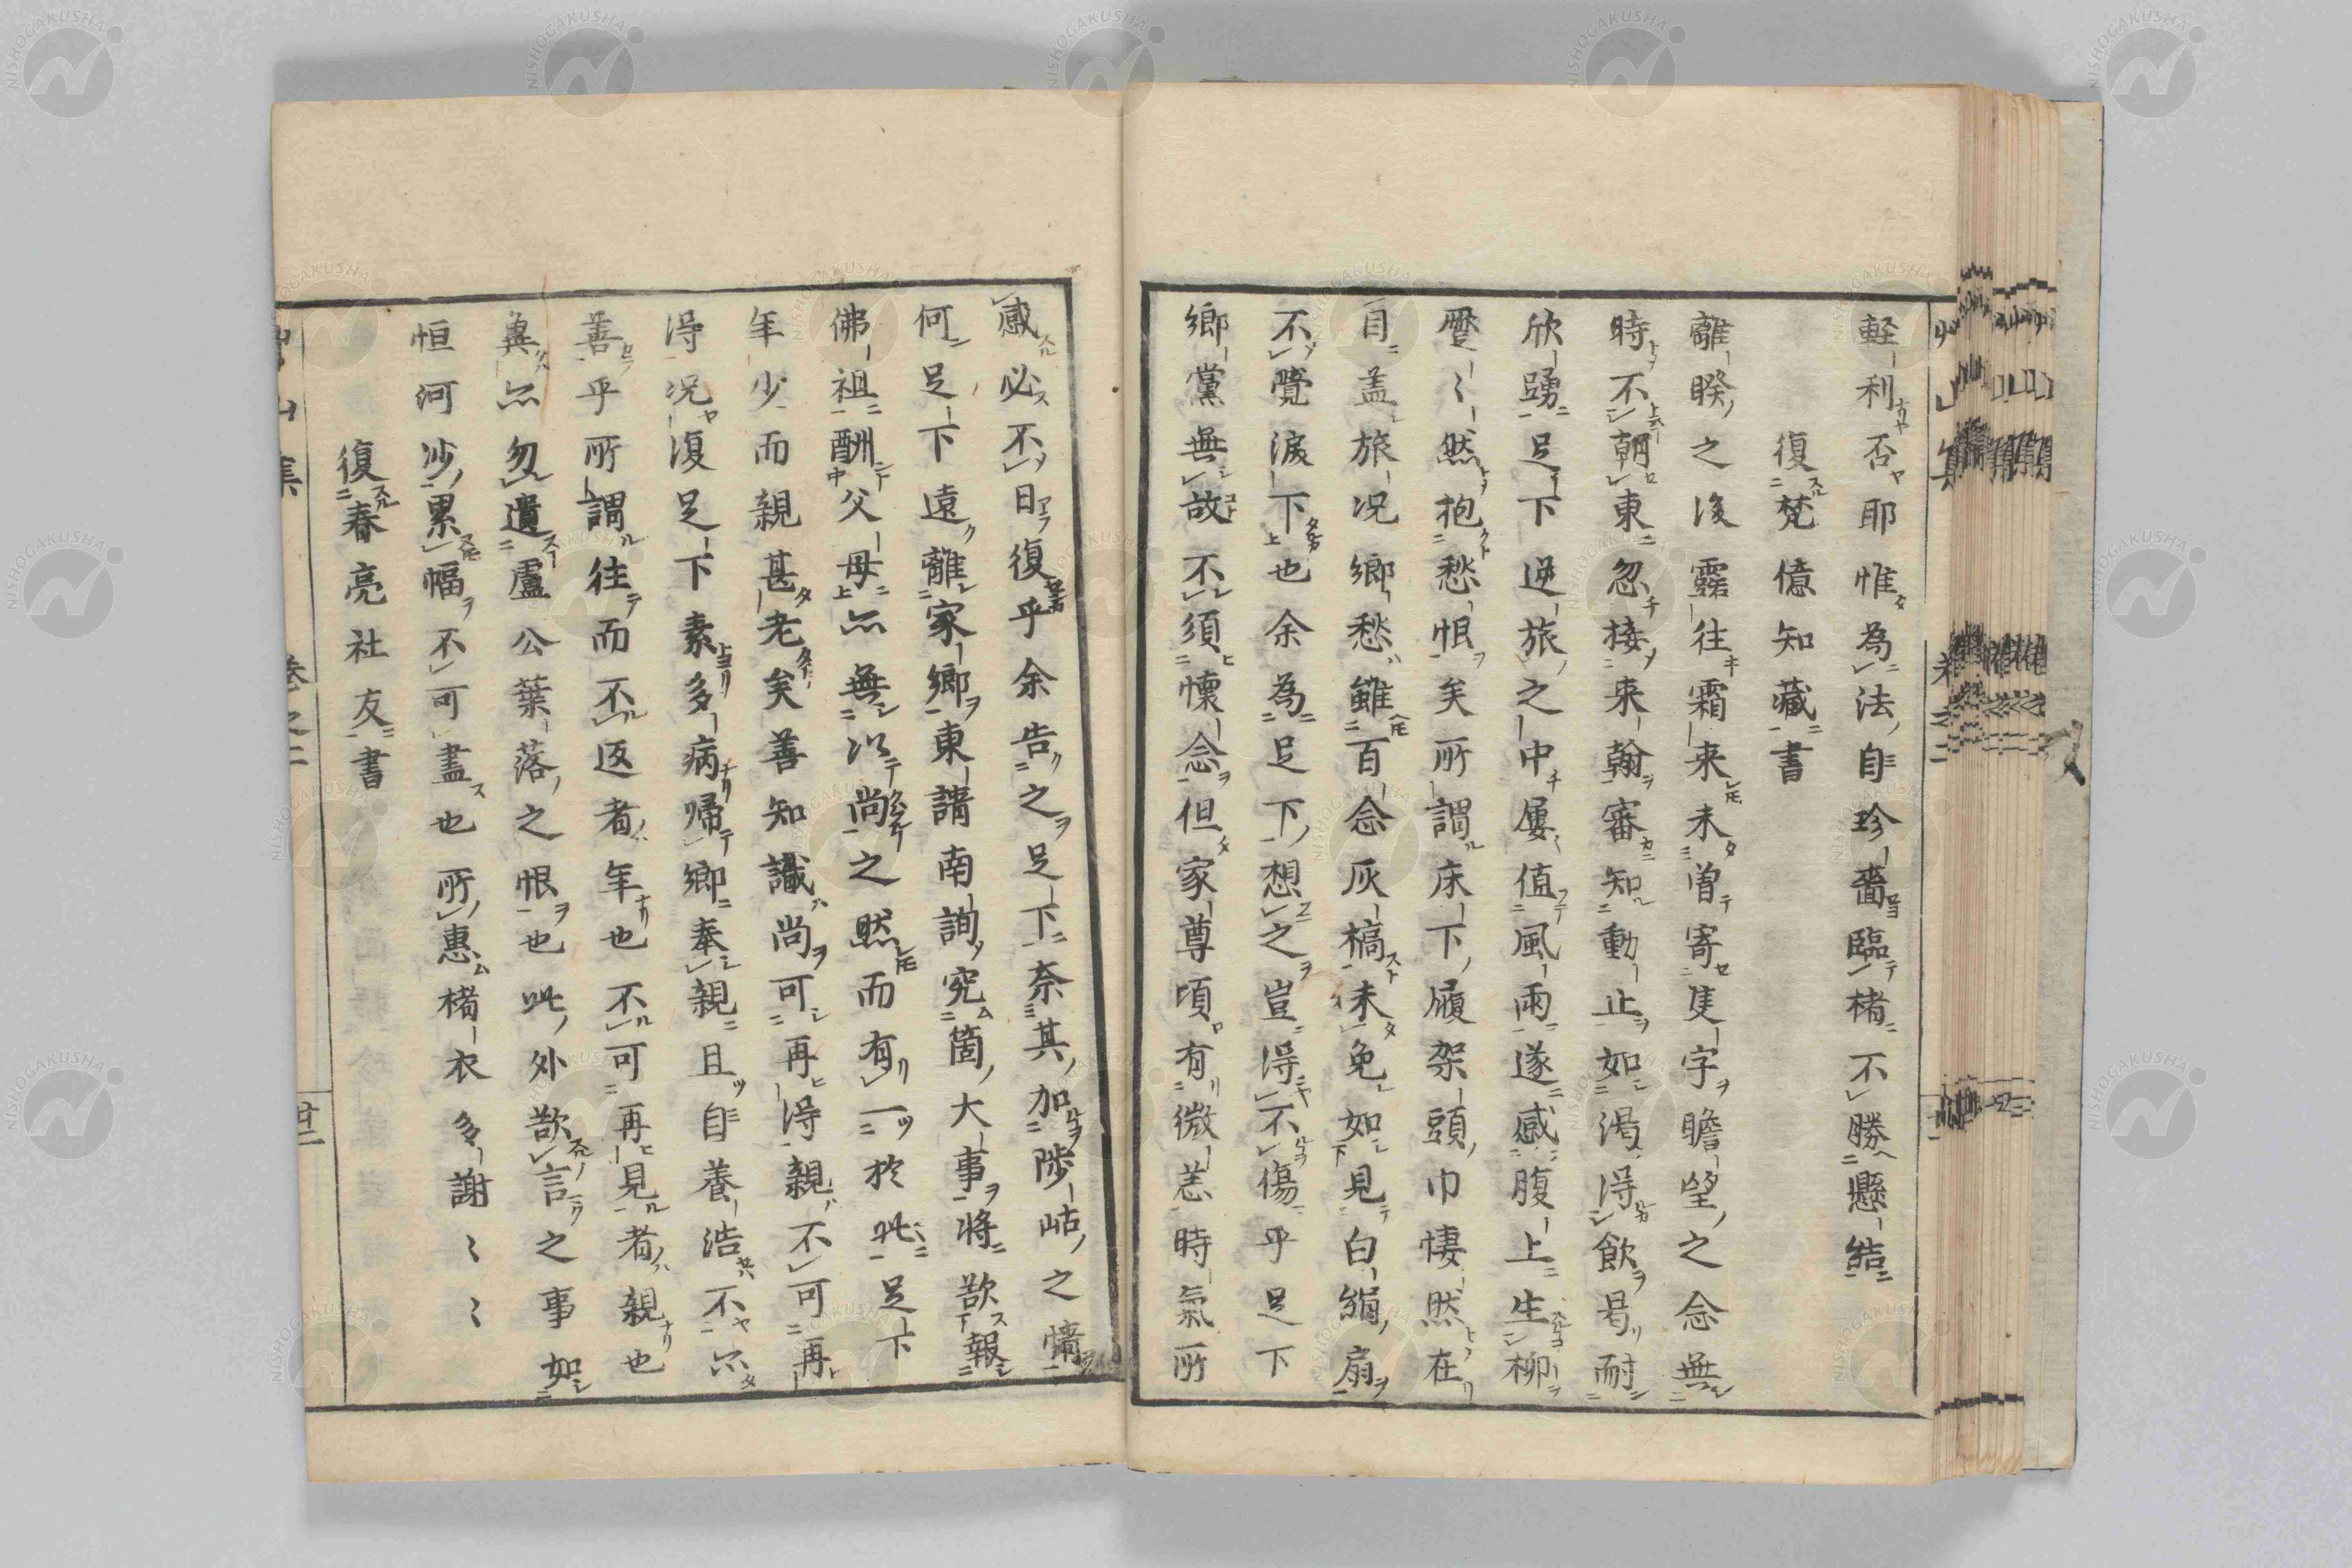 軽利否耶惟為法自珍嗇臨楮不勝懸結
復梵億知藏書
離睽之後露往霜来未曽寄隻字瞻望之念無
時不朝東忽接来翰審知動止如渇得飲曷耐
欣踴足下逆旅之中屢值風雨遂感腹上生柳
歷〻然抱愁恨矣所謂床下履架頭巾悽然在
目盖旅况鄉愁雖百念灰槁未免如見白絹扇
不覺淚下也余為足下想之豈得不傷乎足下
鄉黨無故不須懷念但家尊頃有微恙時氣所
感必不日復乎余告之足下奈其加陟岵之情
何足下遠離家鄉東請南詢究箇大事將欲報
佛祖酬父母亦無以尚之然而有一於此足下
年少而親甚老矣善知識尚可再得親不可再
得况復足下素多病歸鄉奉親且自養浩不亦
善乎所謂往而不返者年也不可再見者親也
冀亦勿遺盧公葉落之恨也此外欲言之事如
恒河沙累幅不可盡也所惠楮衣多謝〻〻
復春亮社友書
集
卷之二
廿二
NISHOGAKUSHA